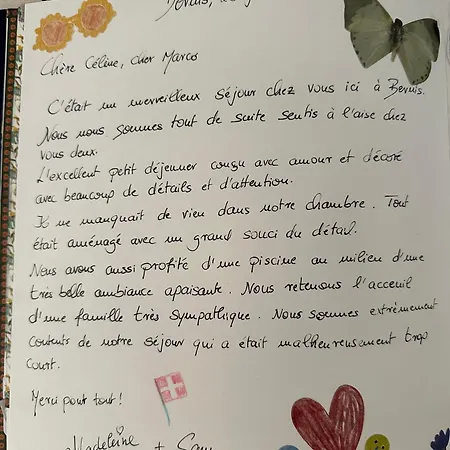 Bernis,
Chère Céline, cher Marco
C'était un merveilleux séjour chez vous ici à Bernis.
Nous nous sommes tout de suite sentis à l'aise chez
vous deux.
L'excellent petit déjeuner conçu avec amour et décoré
avec beaucoup de détails et d'attention.
Il ne manquait de rien dans notre chambre. Tout
était aménagé avec un grand souci du détail.
Nous avons aussi profité d'une piscine au milieu d'une
très belle ambiance apaisante. Nous retenons l'acceuil
d'une famille très sympathique. Nous sommes extrêmement
contents de notre séjour qui a était malheureusement trop
court.
Merci pour tout!
Madeleine +